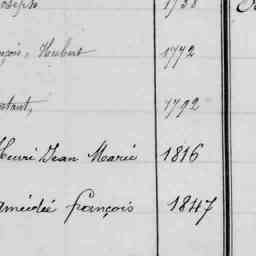 Joseph 1738
nçois, Hubert 1772
nstant, 1792
Henri Jean Marie 1816
Amédée françois 1847